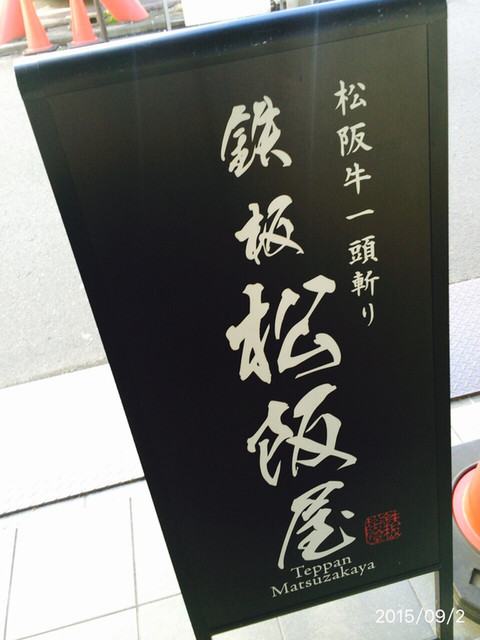 松阪牛一頭斬り
鉄板松阪屋
Teppan
Matsuzakaya
2015/09/2